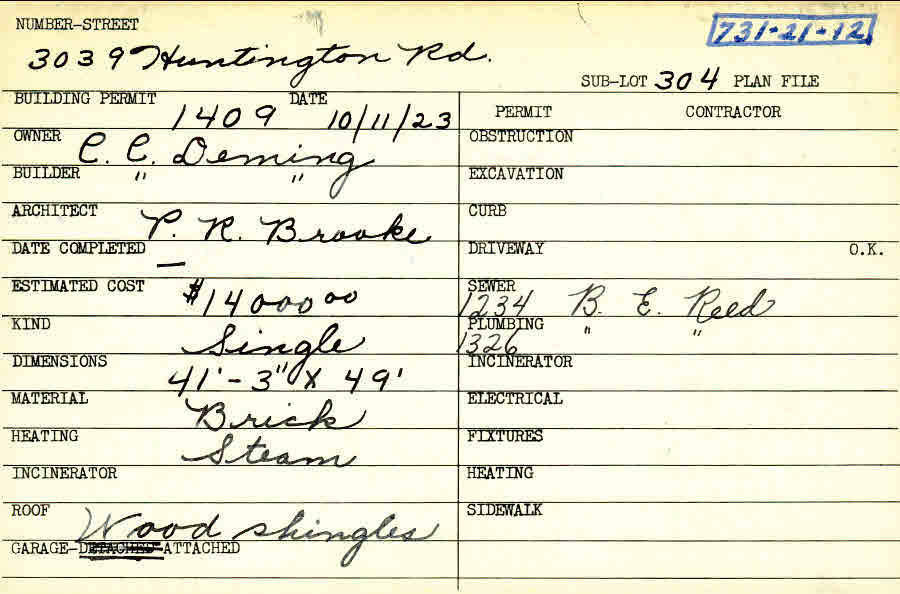 NUMBER-STREET
731-21-12
3039 Huntington Rd.
SUB-LOT 304 PLAN FILE
BUILDING PERMIT 1409 DATE 10/11/23
PERMIT CONTRACTOR
OWNER C. C. Deming
OBSTRUCTION
BUILDER " "
EXCAVATION
ARCHITECT P. R. Brooke
CURB
DATE COMPLETED —
DRIVEWAY O.K.
ESTIMATED COST $14000 00
SEWER 1234 B. E. Reed
KIND Single
PLUMBING 1326 " "
DIMENSIONS 41'-3" X 49'
INCINERATOR
MATERIAL Brick
ELECTRICAL
HEATING Steam
FIXTURES
INCINERATOR
HEATING
ROOF Wood shingles
SIDEWALK
GARAGE-DETACHED-ATTACHED